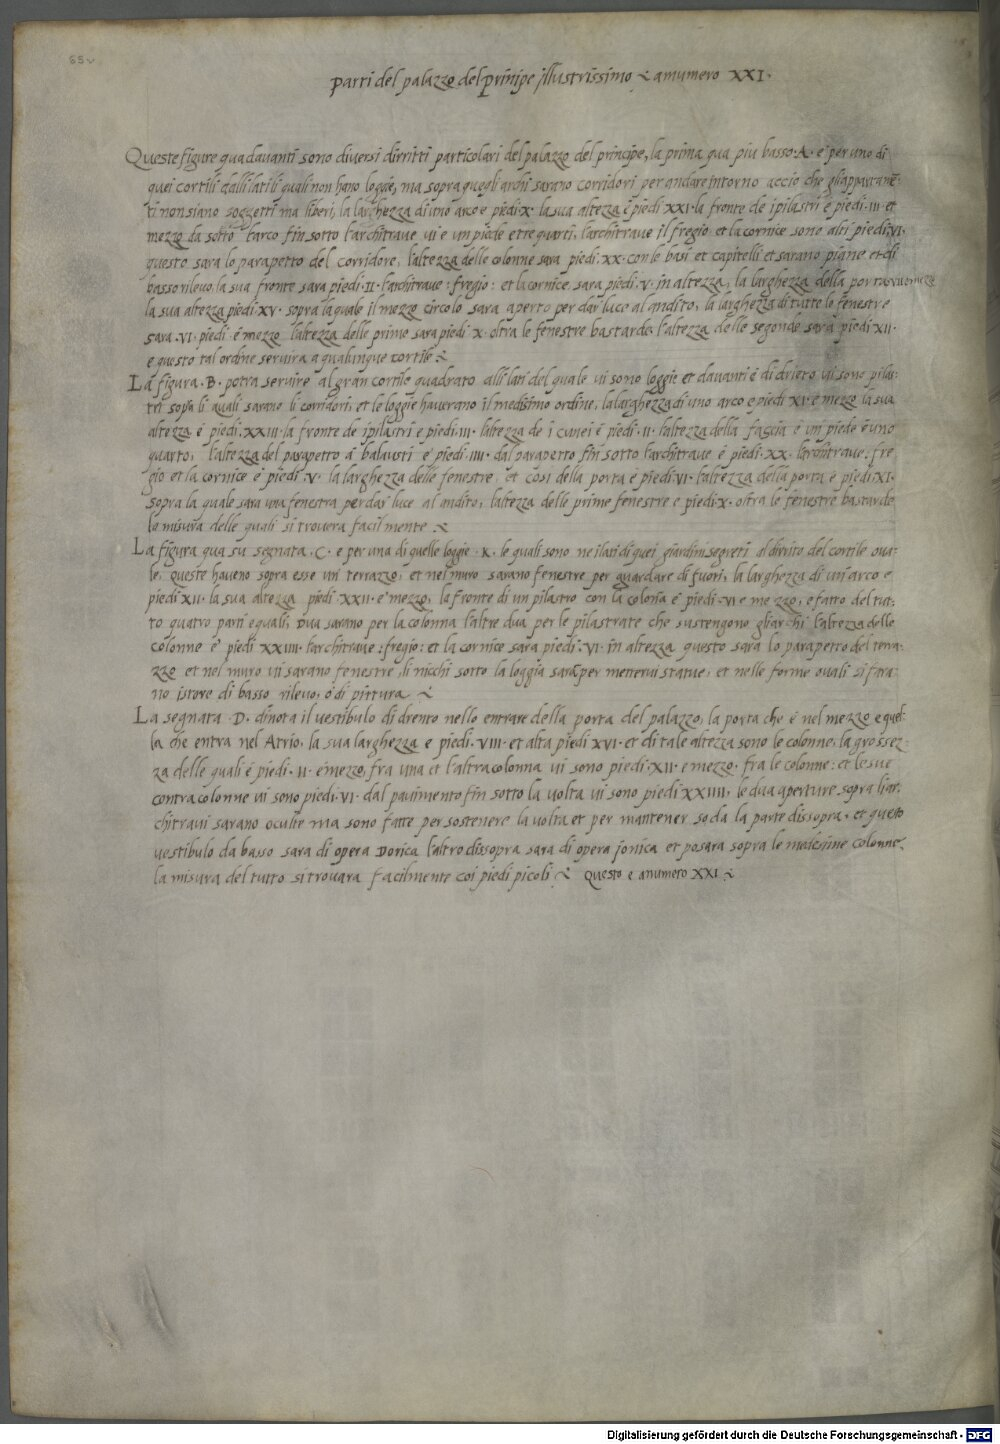 65v
Parti del palazzo del principe illustrissimo · a numero XXI ·
Queste figure qua davanti sono diversi dirritti particolari del palazzo del principe, la prima qua piu basso · A · e per uno di
quei cortili dalli lati li quali non hano loggie, ma sopra quegli archi sarano corridori per andare intorno accio che gli appartamē-
ti non siano soggetti ma liberi, la larghezza di uno arco e piedi · X · la sua altezza è piedi XXI · la fronte de i pilastri è piedi · III · et
mezzo da sotto l'arco fin sotto l'architrave vi e un piede e tre quarti, l'architrave il fregio et la cornice sono alti piedi · VI ·
questo sara lo parapetto del corridore, l'altezza delle colonne sara piedi · XX · con le basi et capitelli et sarano piane et di
basso rilevo, la sua fronte sara piedi · II · l'architrave : fregio : et la cornice sara piedi · V · in altezza, la larghezza della porta
la sua altezza piedi XV · sopra la quale il mezzo circolo sara aperto per dar luce al andito, la larghezza di tutte le fenestre
sara · VI · piedi è mezzo l'altezza delle prime sara piedi · X · oltra le fenestre bastarde l'altezza delle segonde sara piedi XII ·
e questo tal ordine servira a qualunque cortile ·
La figura · B · potra servire al gran cortile quadrato alli lati del quale vi sono loggie et davanti è di drieto vi sono pilas-
tri sopra li quali sarano li corridori, et le loggie haverano il medesimo ordine, la larghezza di uno arco e piedi · XI · e mezzo la sua
altezza è piedi · XXIII · la fronte de i pilastri e piedi · III · l'altezza de i cunei è piedi · II · l'altezza della faccia è un piede è uno
quarto, l'altezza del parapetto à balaustri e piedi · IIII · dal parapetto fin sotto l'architrave è piedi · XX · l'architrave : fre-
gio et la cornice è piedi · V · la larghezza delle fenestre, et cosi della porta è piedi · VI · l'altezza della porta è piedi · XI ·
sopra la quale sara una fenestra per dar luce al andito, l'altezza delle prime fenestre e piedi · X · oltra le fenestre bastarde
la misura delle quali si trovera facilmente ·
La figura qua su segnata · C · e per una di quelle loggie · K · le quali sono ne i lati di quei giardini segreti al dirrito del cortile ova-
le, queste haveno sopra esse un terrazzo, et nel muro sarano fenestre per guardare di fuori, la larghezza di un arco e
piedi XII · la sua altezza piedi · XXII · e mezzo, la fronte di un pilastro con la colona è piedi · VI e mezzo, e fatto del tut-
to quatro parti equali, Dua sarano per la colonna l'altre dua per le pilastrate che sustengono gli archi l'altezza delle
colonne è piedi XXIIII · l'architrave : fregio : et la cornice sara piedi · VI · in altezza questo sara lo parapetto del terra-
zzo et nel muro vi sarano fenestre, li nicchi sotto la loggia sarā per mettervi statue, et nelle forme ovali si fara-
no istorie di basso rilevo, ò di pittura ·
La segnata · D · dinota il vestibulo di drento nello entrare della porta del palazzo, la porta che è nel mezzo e quel-
la che entra nel Atrio, la sua larghezza e piedi · VIII · et alta piedi XVI · et di tale altezza sono le colonne, la grossez-
za delle quali è piedi · II · è mezzo, fra una et l'altra colonna vi sono piedi · XII · e mezzo · fra le colonne : et le sue
contracolonne vi sono piedi · VI · dal pavimento fin sotto la volta vi sono piedi XXIIII, le dua aperture sopra li ar-
chitravi sarano oculte ma sono fatte per sostenere la volta et per mantener soda la parte dissopra · et questo
vestibulo da basso sara di opera Dorica l'altro dissopra sara di opera jonica et posara sopra le medesime colonne ·
la misura del tutto si trovara facilmente coi piedi picoli · Questo e a numero XXI ·
Digitalisierung gefördert durch die Deutsche Forschungsgemeinschaft - DFG